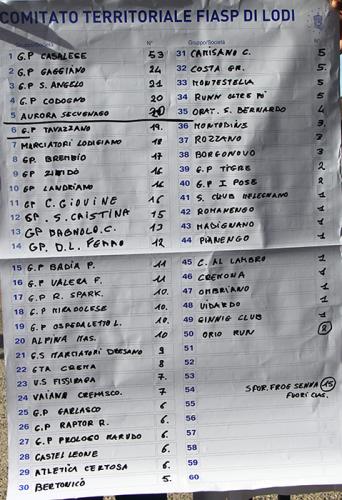 COMITATO TERRITORIALE FIASP DI LODI
Gruppo/Società
1 G.P CASALESE 53
2 G.P GAGGIANO 24
3 G.P S. ANGELO 21
4 G.P CODOGNO 20
5 AURORA SECUGNAGO 20
6 G.P TAVAZZANO 19.
7 MARCIATORI LODIGIANO 18
8 GP. BREMBIO 17
9 GP ZIVIDO 16
10 GP LANDRIANO 16
11 GP C. GIOVINE 16
12 GP. S. CRISTINA 15
13 GP BAGNOLO C. 13
14 GP. D.L. FERNO 12
15 G.P BADIA P. 11
16 G.P VALERA F. 11
17 G.P R. SPARK. 10.
18 G.P MIRADOLESE 10.
19 G.P OSPEDALETTO L. 10.
20 ALPINA MAS. 10.
21 G.S MARCIATORI DRESANO 9
22 GTA CREMA 8
23 U.S FISSIRAGA 7.
24 VAIANO CREMASCO. 7
25 G.P GARLASCO 6
26 G.P RAPTOR R. 6.
27 G.P PROLOGO MARUDO 6.
28 CASTELLEONE 6.
29 ATLETICA CERTOSA 6.
30 BERTONICO 5.
Gruppo/Società N°
31 CAMISANO C. 5
32 COSTA GR. 5.
33 MONTESTELLA 5
34 RUNN OLTRE PÒ 5
35 ORAT. S. BERNARDO 4
36 MONTODINE 3
37 ROZZANO 3
38 BORGONOVO 3
39 G.P TIGRE 2
40 G.P I POSE 2
41 S. CLUB MELEGNANO 1
42 ROMANENGO 1
43 MADIGNANO 1
44 PIANENGO 1
45 C. AL LAMBRO 1
46 CREMONA 1
47 OMBRIANO 1
48 VIDARDO 1
49 GINNIG CLUB 1
50 ORIO RUN 2
51
52
53
54 SPOR. FROG SENNA 15
55 FUORI CLAS.
56
57
58
59
60